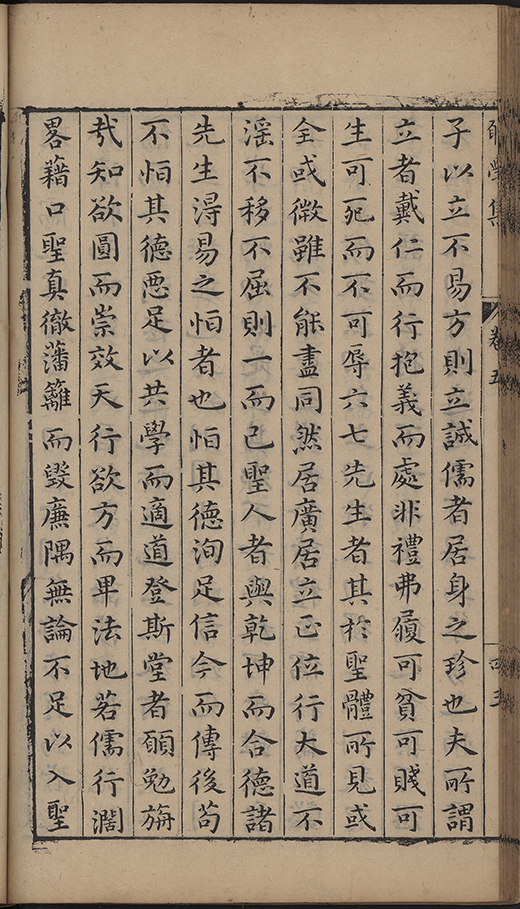 集 卷五
子以立不易方則立誠儒者居身之珍也夫所謂
立者戴仁而行抱義而處非禮弗履可貧可賤可
生可死而不可辱六七先生者其於聖體所見或
全或微雖不能盡同然居廣居立正位行大道不
淫不移不屈則一而已聖人者與乾坤而合德諸
先生淂易之恒者也恒其德洵足信今而傳後苟
不恒其德惡足以共學而適道登斯堂者願勉旃
㢤知欲圓而崇效天行欲方而卑法地若儒行濶
畧藉口聖真徹藩籬而毀廉隅無論不足以入聖